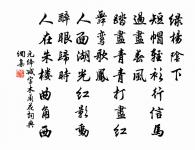 綠楊陰下
短帽輕衫行信馬
過盡春風
踏盡青青打盡紅
舞鸞歌鳳
人面湖光紅影動
醉眼歸時
人在朱樓曲角西
減字木蘭花詞典
網集